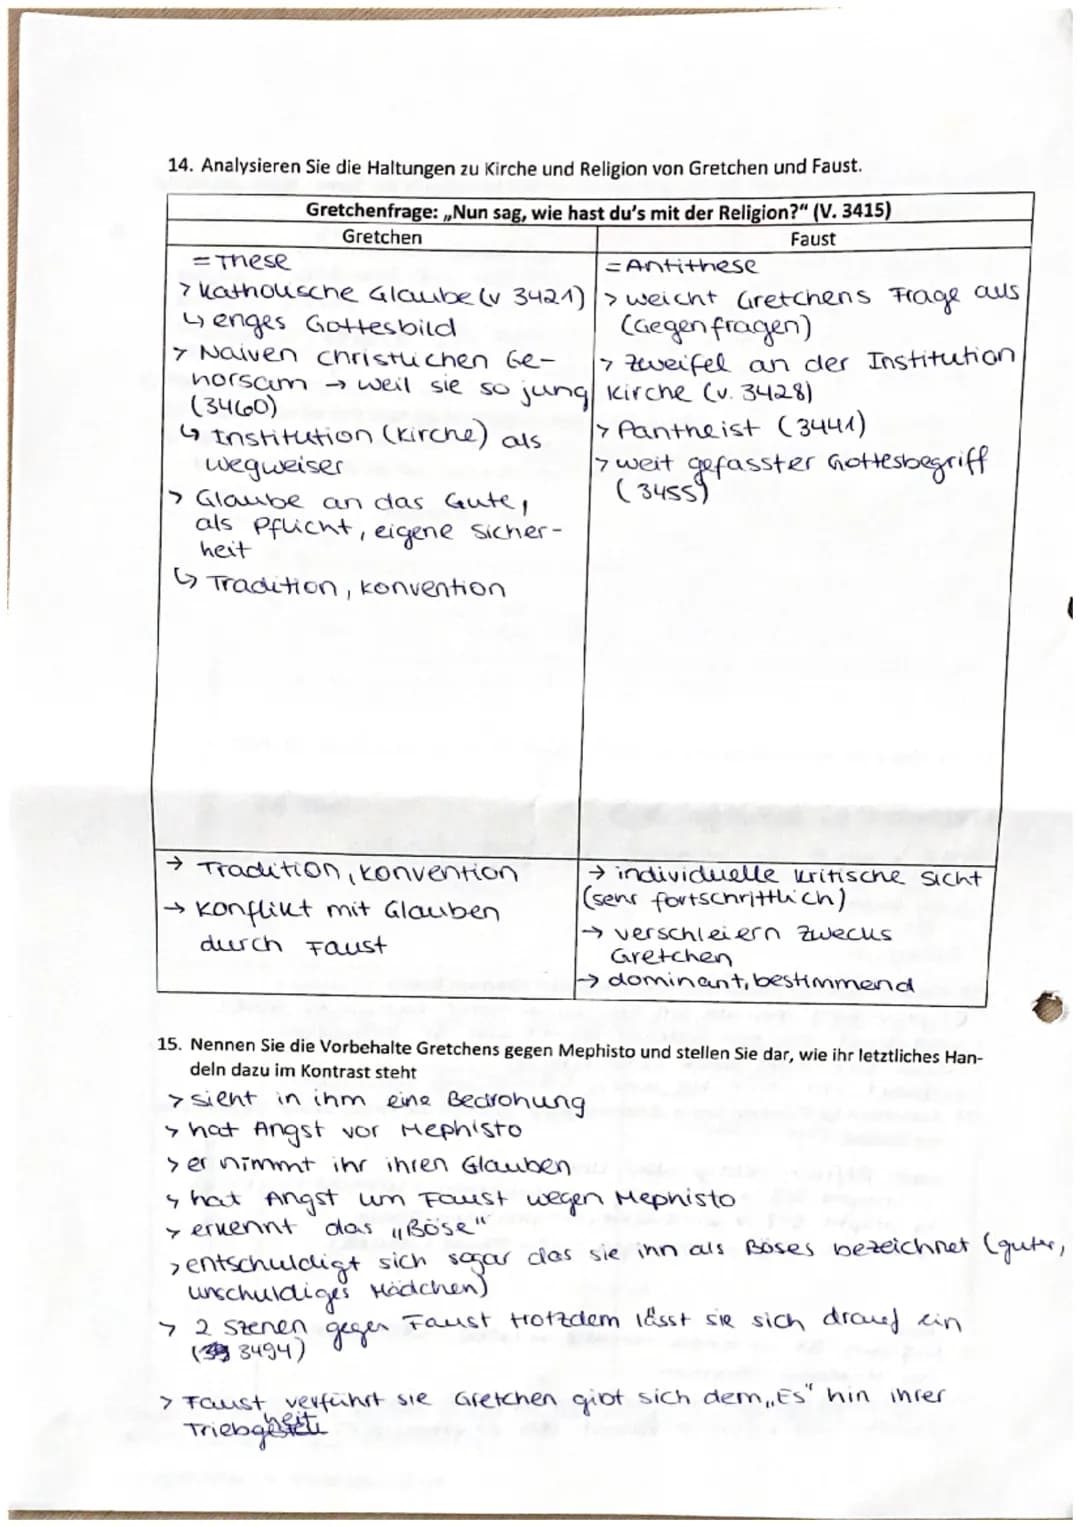 14. Analysieren Sie die Haltungen zu Kirche und Religion von Gretchen und Faust.
Gretchenfrage: „Nun sag, wie hast du's mit der Religion?" (V. 3415)
Gretchen
= These
> Katholische Glaube (v 3421)
↳ enges Gottesbild
> Naiven christlichen Ge-
horsam → weil sie so jung
(3460)
↳ Institution (Kirche) als
wegweiser
> Glaube an das Gute,
als Pflicht, eigene Sicher-
heit
↳ Tradition, Konvention
→ Tradition, Konvention
→ Konflikt mit Glauben
durch Faust
Faust
= Antithese
> weicht Gretchens Frage aus
(Gegenfragen)
> Zweifel an der Institution
Kirche (v. 3428)
> Pantheist (3441)
> weit gefasster Gottesbegriff
(3455)
→ individuelle kritische Sicht
(sehr fortschrittlich)
→ verschleiern zwecks
Gretchen
→ dominant, bestimmend
15. Nennen Sie die Vorbehalte Gretchens gegen Mephisto und stellen Sie dar, wie ihr letztliches Han-
deln dazu im Kontrast steht
> sieht in ihm eine Bedrohung
> hat Angst vor Mephisto
> er nimmt ihr ihren Glauben
> hat Angst um Faust wegen Mephisto
> erkennt das „Böse"
> entschuldigt sich sogar das sie ihn als Böses bezeichnet (guter,
unschuldiges Mädchen)
> 2 Szenen gegen Faust trotzdem lässt sie sich drauf ein
(3494)
> Faust verführt sie Gretchen gibt sich dem „Es" hin ihrer